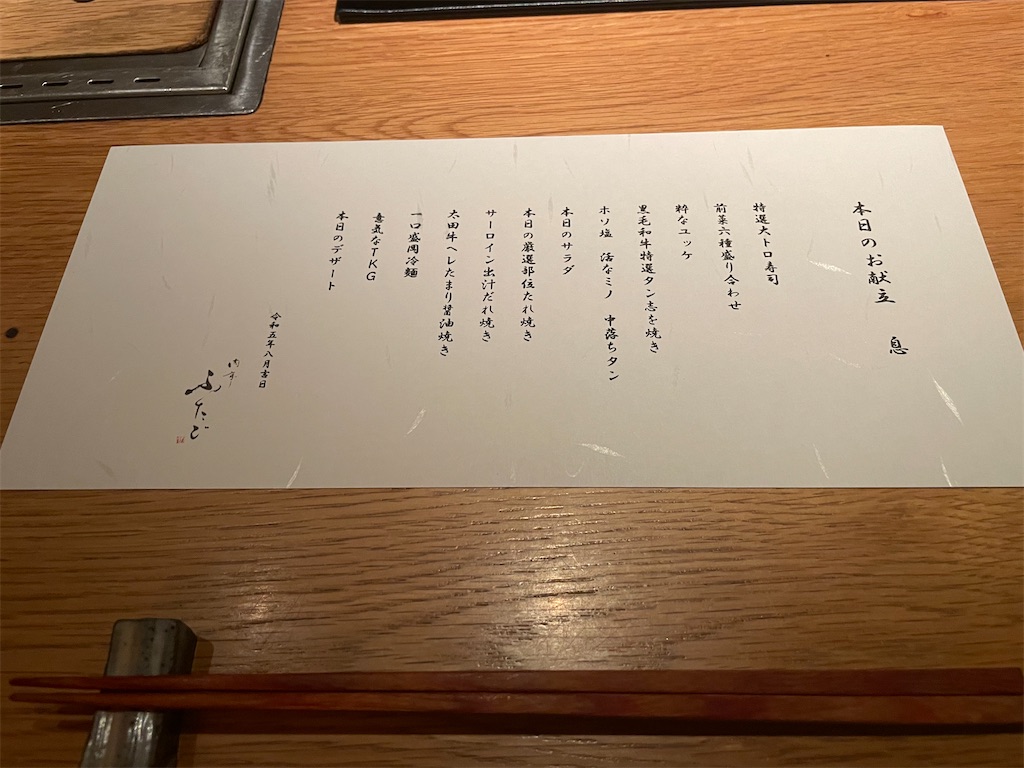 本日のお献立　息
特選大トロ寿司
前菜六種盛り合わせ
粋なユッケ
黒毛和牛特選タン志を焼き
ホソ塩　活なミノ　中落ちタン
本日のサラダ
本日の厳選部位たれ焼き
サーロイン出汁だれ焼き
太田牛ヘレたまり醤油焼き
一口盛岡冷麺
意気なTKG
本日のデザート
令和五年八月吉日
ふたご